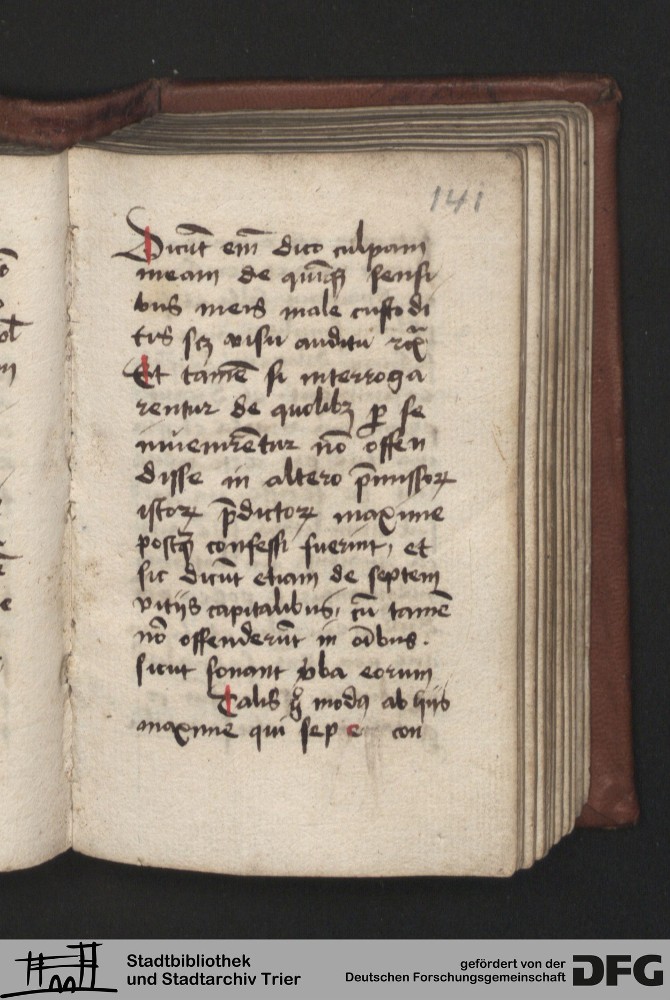 141
Dicūt em̄ dico culpam
meam de quinq̄ꝫ sensi
bus meis male custodi
tis scꝫ visu auditu
Et tamē si interroga
rentur de quolibꝫ ꝑ se
inuenirētur nō offen
disse in altero p̄missoꝝ
istoꝝ p̄dictoꝝ maxime
postꝙ̄ confessi fuerint, et
sic dicūt etiam de septem
vitijs capitalibus, cū tamē
nō offenderūt in oībus.
sicut sonant v̓ba eorum
Talis modꝰ ab hijs
maxime qui sepe con
Stadtbibliothek
und Stadtarchiv Trier
gefördert von der
Deutschen Forschungsgemeinschaft
DFG